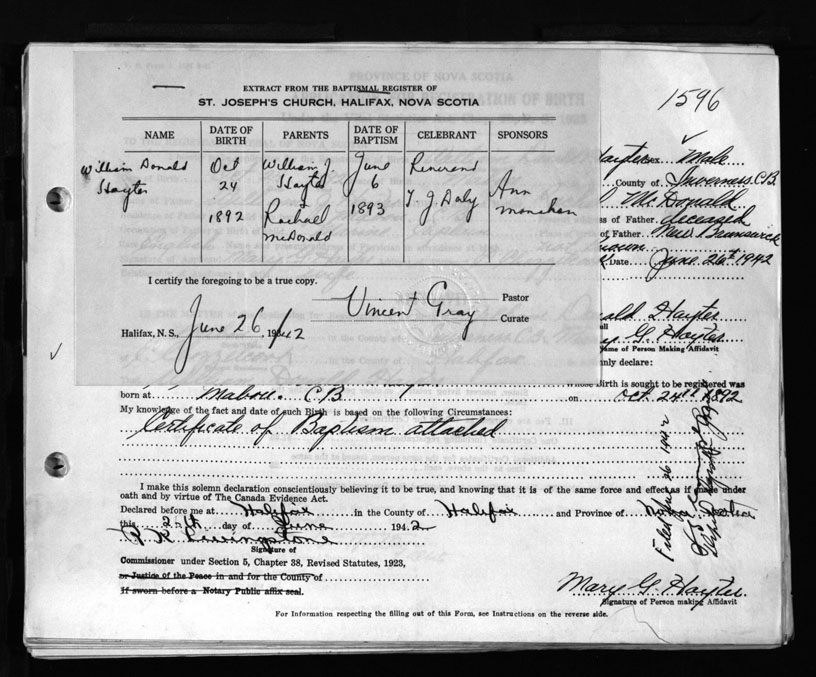 EXTRACT FROM THE BAPTISMAL REGISTER OF
ST. JOSEPH'S CHURCH, HALIFAX, NOVA SCOTIA
1596
NAME DATE OF BIRTH PARENTS DATE OF BAPTISM CELEBRANT SPONSORS
William Donald Oct William J. June Reverend
Hayter 24 Hayter 6 T. J. Daly Ann
1892 Rachael 1893 Monahan
McDonald
Hayter Sex Male
County of Inverness C.B.
McDonald
ss of Father deceased
of Father New Brunswick
Date June 26th 1942
I certify the foregoing to be a true copy.
Vincent Gray Pastor
Curate
Halifax, N.S., June 26 1942
Donald Hayter
Mary G. Hayter
Name of Person Making Affidavit
nly declare:
whose birth is sought to be registered was
born at Mabou. C.B. on Oct. 24th 1892
My knowledge of the fact and date of such Birth is based on the following Circumstances:
Certificate of Baptism attached
I make this solemn declaration conscientiously believing it to be true, and knowing that it is of the same force and effect as if made under
oath and by virtue of The Canada Evidence Act.
Declared before me at Halifax in the County of Halifax and Province of
this day of June 1942
Signature of
Commissioner under Section 5, Chapter 38, Revised Statutes, 1923,
or Justice of the Peace in and for the County of
If sworn before a Notary Public affix seal.
Filed June 26 1942
Mary G. Hayter
Signature of Person making Affidavit
For Information respecting the filling out of this Form, see Instructions on the reverse side.